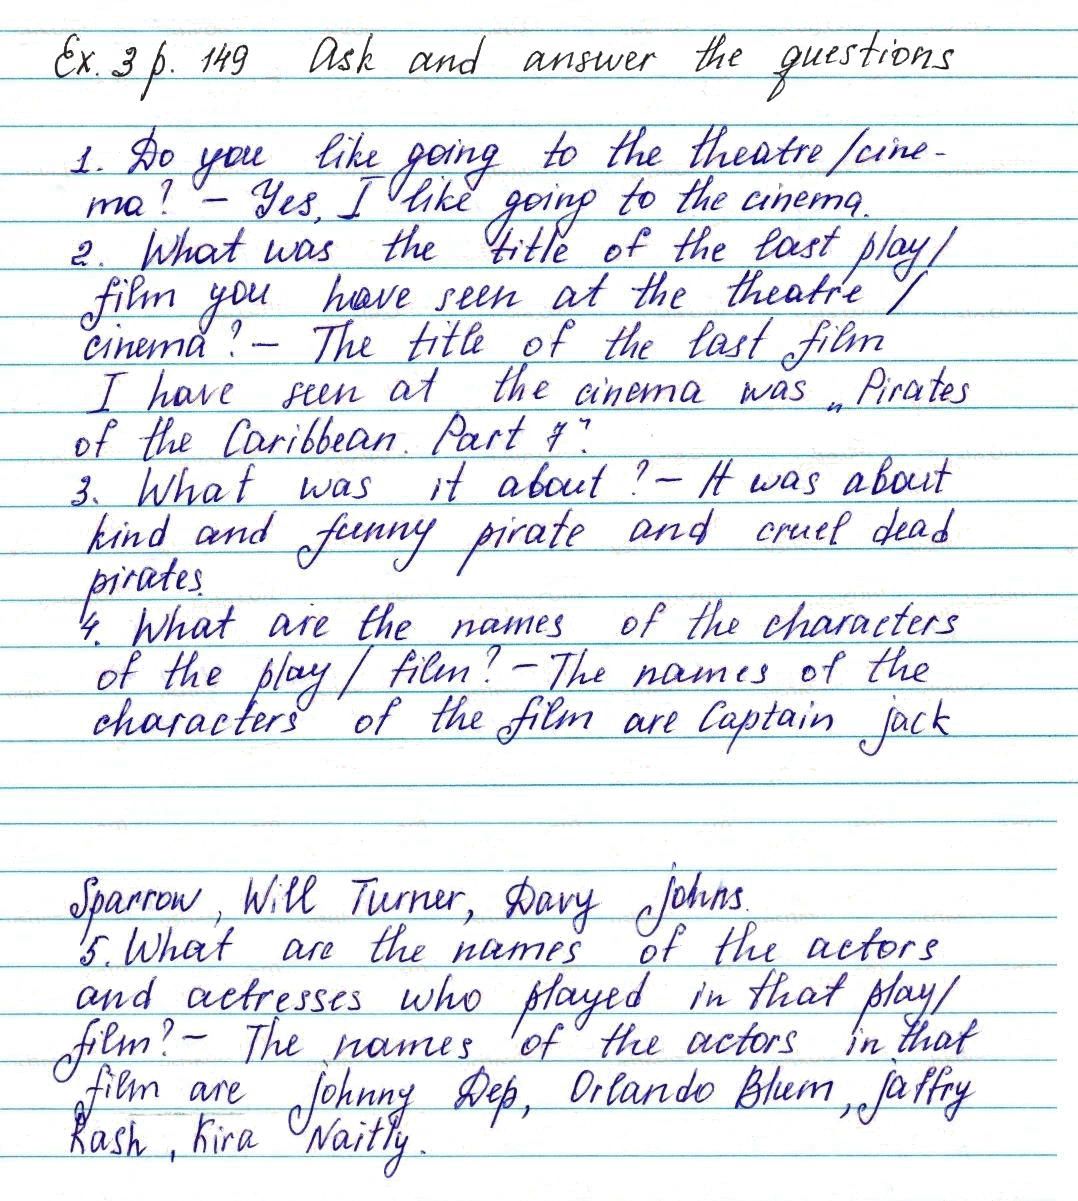 Ex. 3 p. 149 Ask and answer the questions
1. Do you like going to the theatre/cine-
ma? – Yes, I like going to the cinema.
2. What was the title of the last play/
film you have seen at the theatre /
cinema? – The title of the last film
I have seen at the cinema was „Pirates
of the Caribbean. Part 7".
3. What was it about? – It was about
kind and funny pirate and cruel dead
pirates.
4. What are the names of the characters
of the play / film? – The names of the
characters of the film are Captain jack
Sparrow, Will Turner, Davy Johns.
5. What are the names of the actors
and actresses who played in that play/
film? – The names of the actors in that
film are Johnny Dep, Orlando Blum, Jaffry
Rash, Kira Naitly.